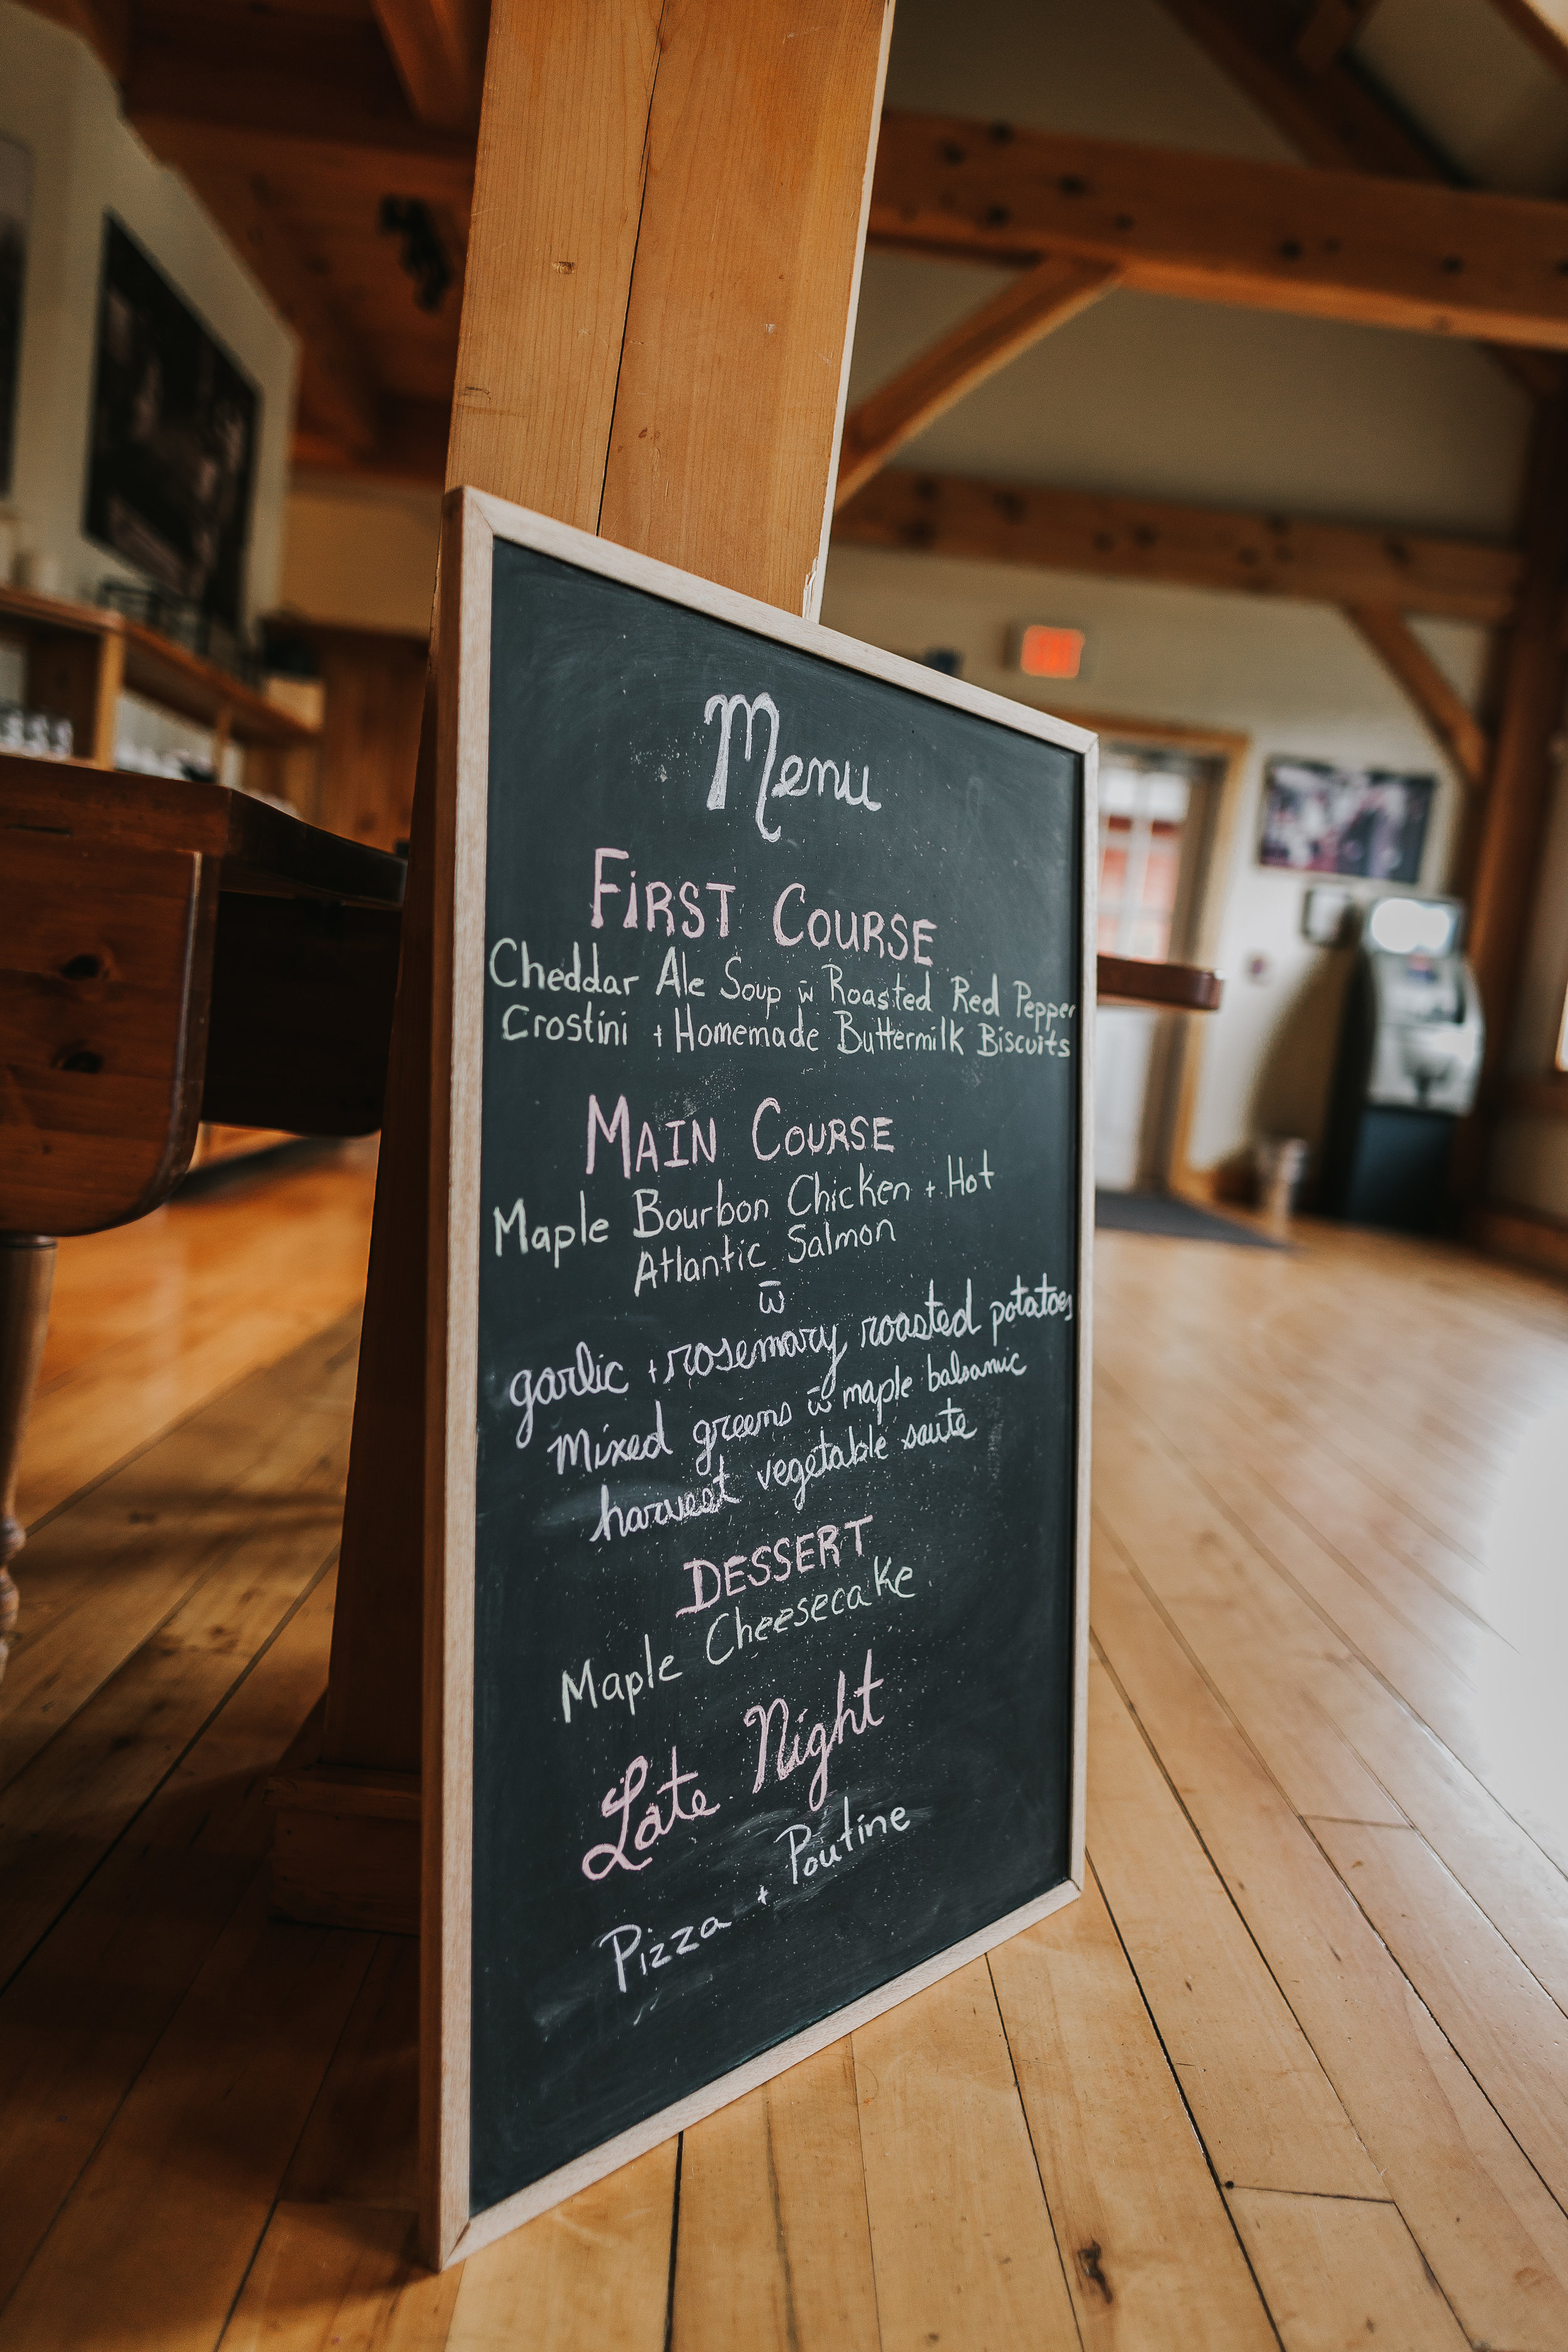 Menu
First Course
Cheddar Ale Soup w̄ Roasted Red Pepper
Crostini + Homemade Buttermilk Biscuits
Main Course
Maple Bourbon Chicken + Hot
Atlantic Salmon
w̄
garlic + rosemary roasted potatoes
Mixed greens w̄ maple balsamic
harvest vegetable saute
Dessert
Maple Cheesecake
Late Night
Pizza + Poutine